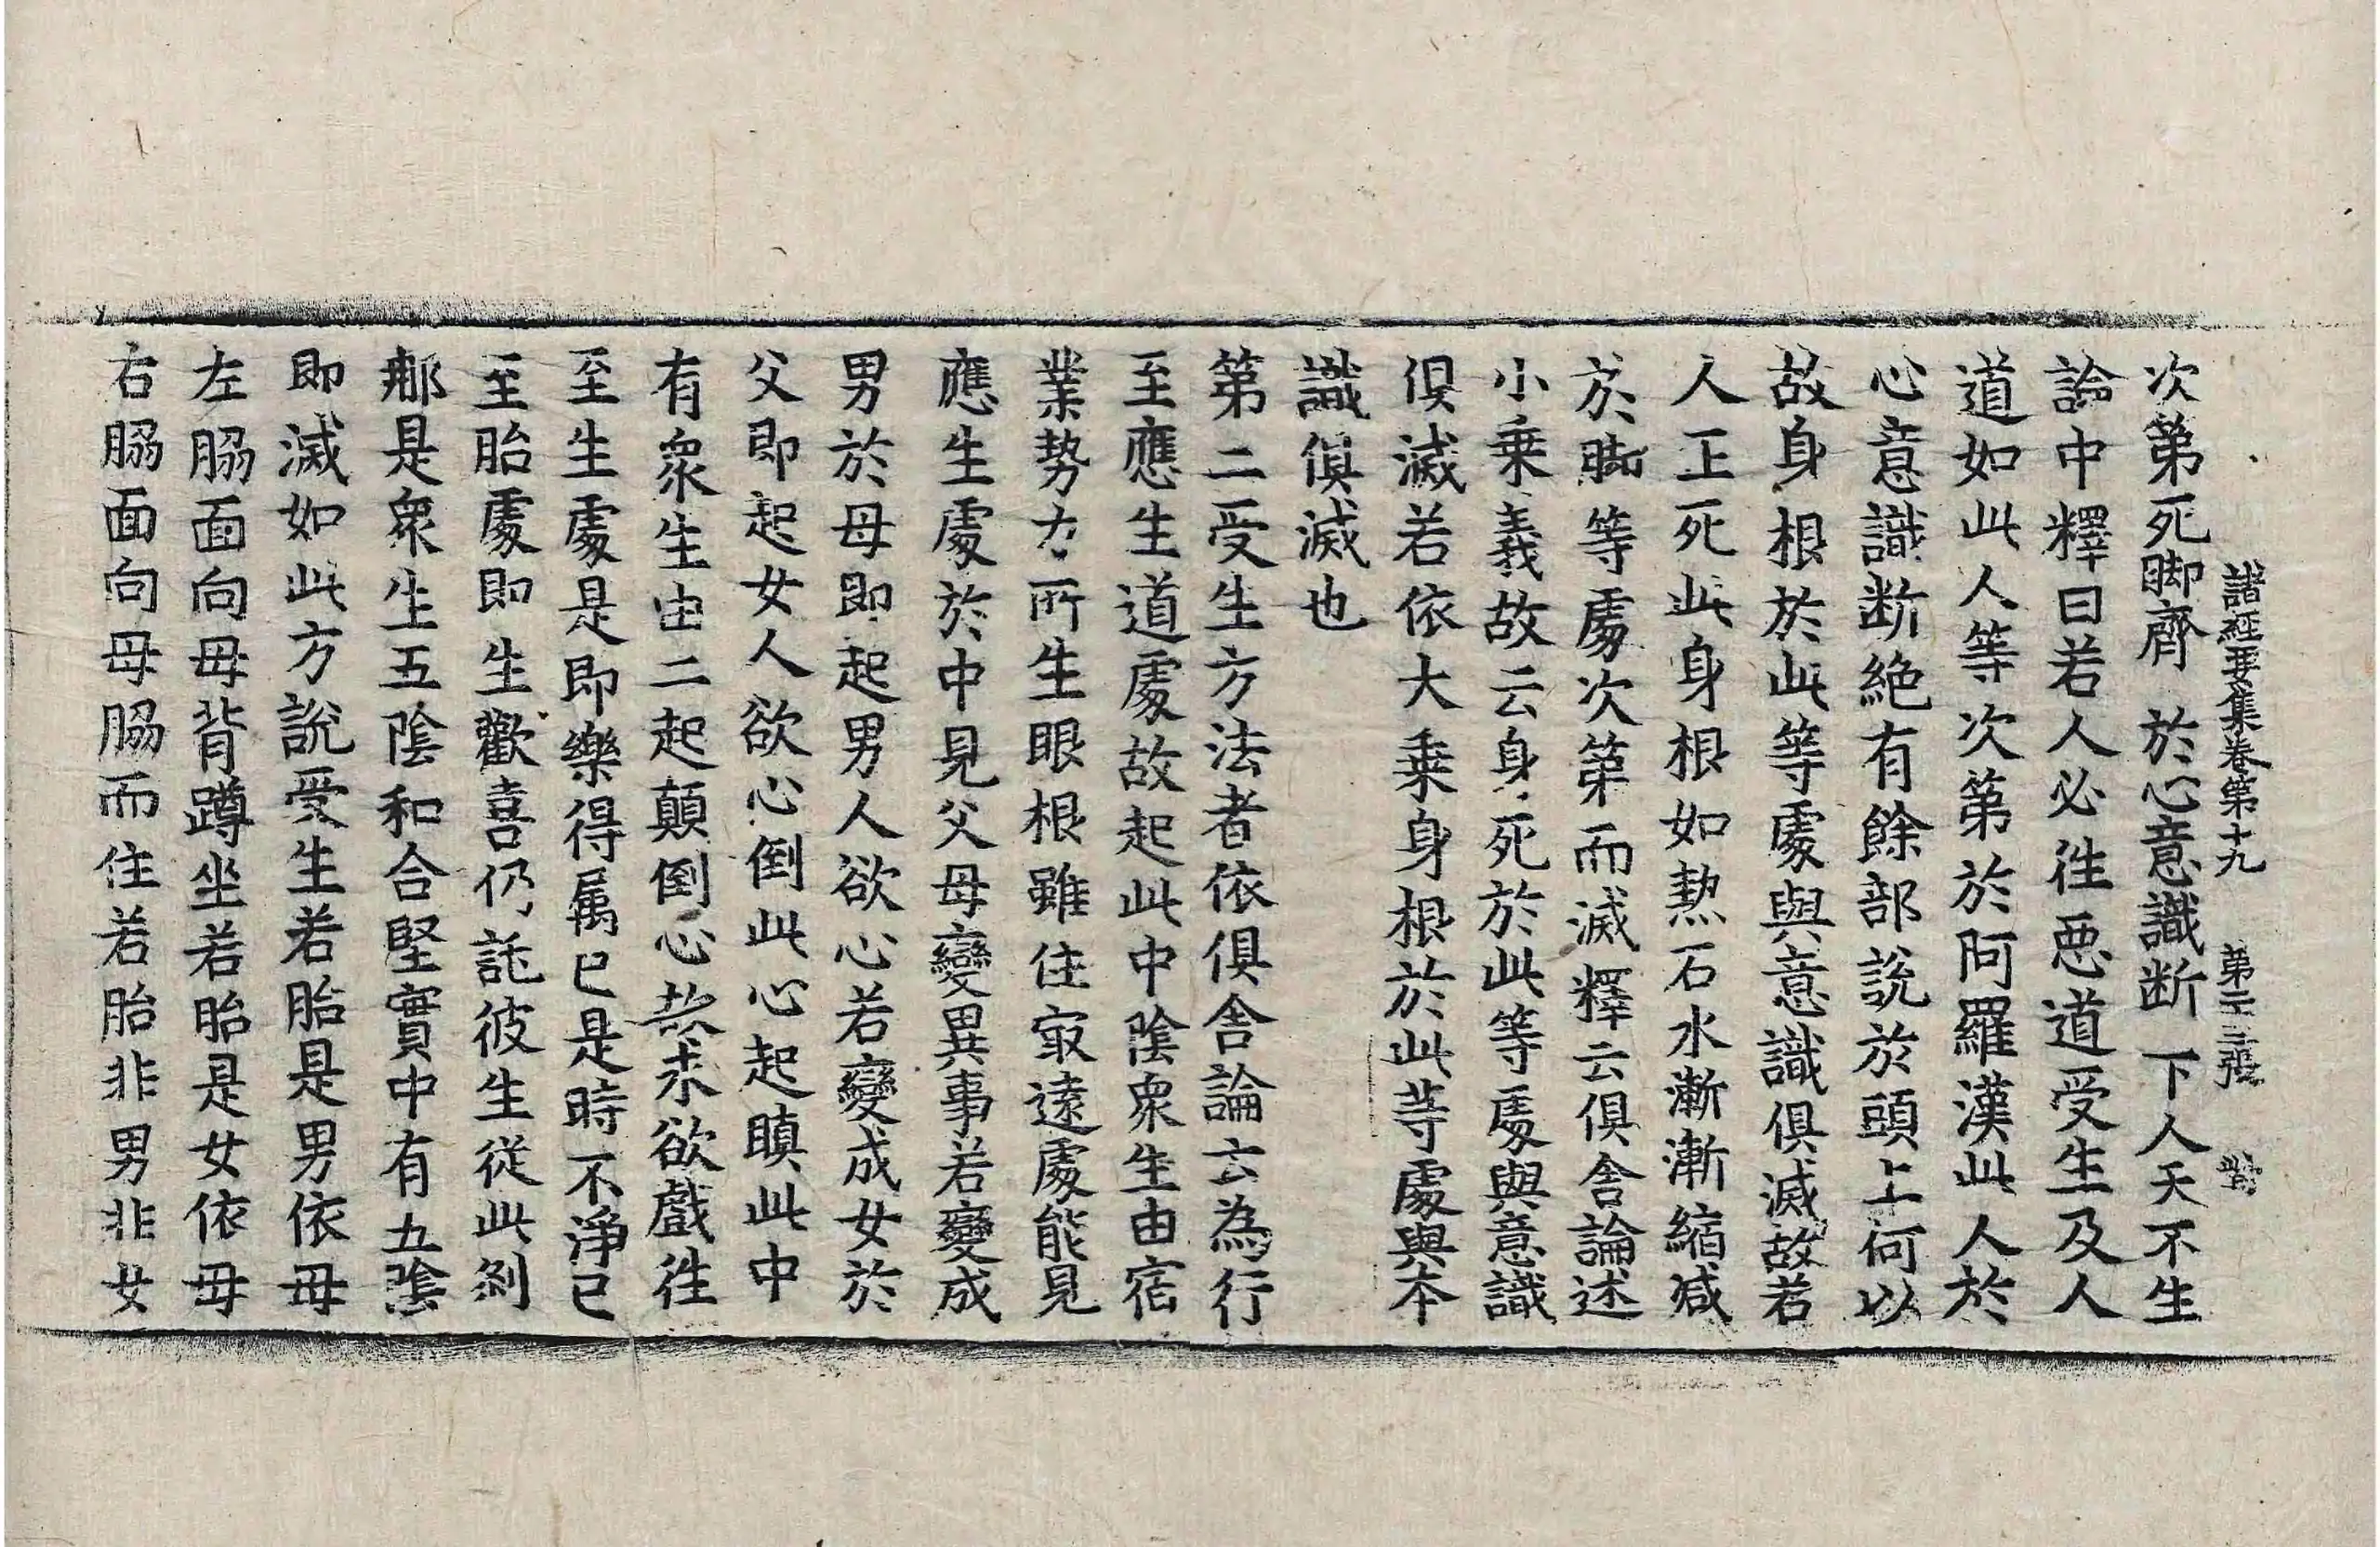 諸經要集卷第十九 第二三張 對
次第死脚齊 於心意識断 下人天不生
論中釋曰若人必往惡道受生及人
道如此人等次第於阿羅漢此人於
心意識断絶有餘部說於頭上何以
故身根於此等處與意識俱滅故若
人正死此身根如熱石水漸漸縮減
於脚等處次第而滅釋云俱舍論述
小乗義故云身死於此等處與意識
俱滅若依大乗身根於此等處與本
識俱滅也
第二受生方法者依俱舍論云為行
至應生道處故起此中陰衆生由宿
業勢力所生眼根雖住㝡遠處能見
應生處於中見父母變異事若變成
男於母即起男人欲心若變成女於
父即起女人欲心倒此心起瞋此中
有衆生由二起顛倒心故求欲戲往
至生處是即樂得属已是時不淨已
至胎處即生歡喜仍託彼生從此刹
那是衆生五陰和合堅實中有五陰
即滅如此方說受生若胎是男依母
左脇面向母背蹲坐若胎是女依母
右脇面向母脇而住若胎非男非女